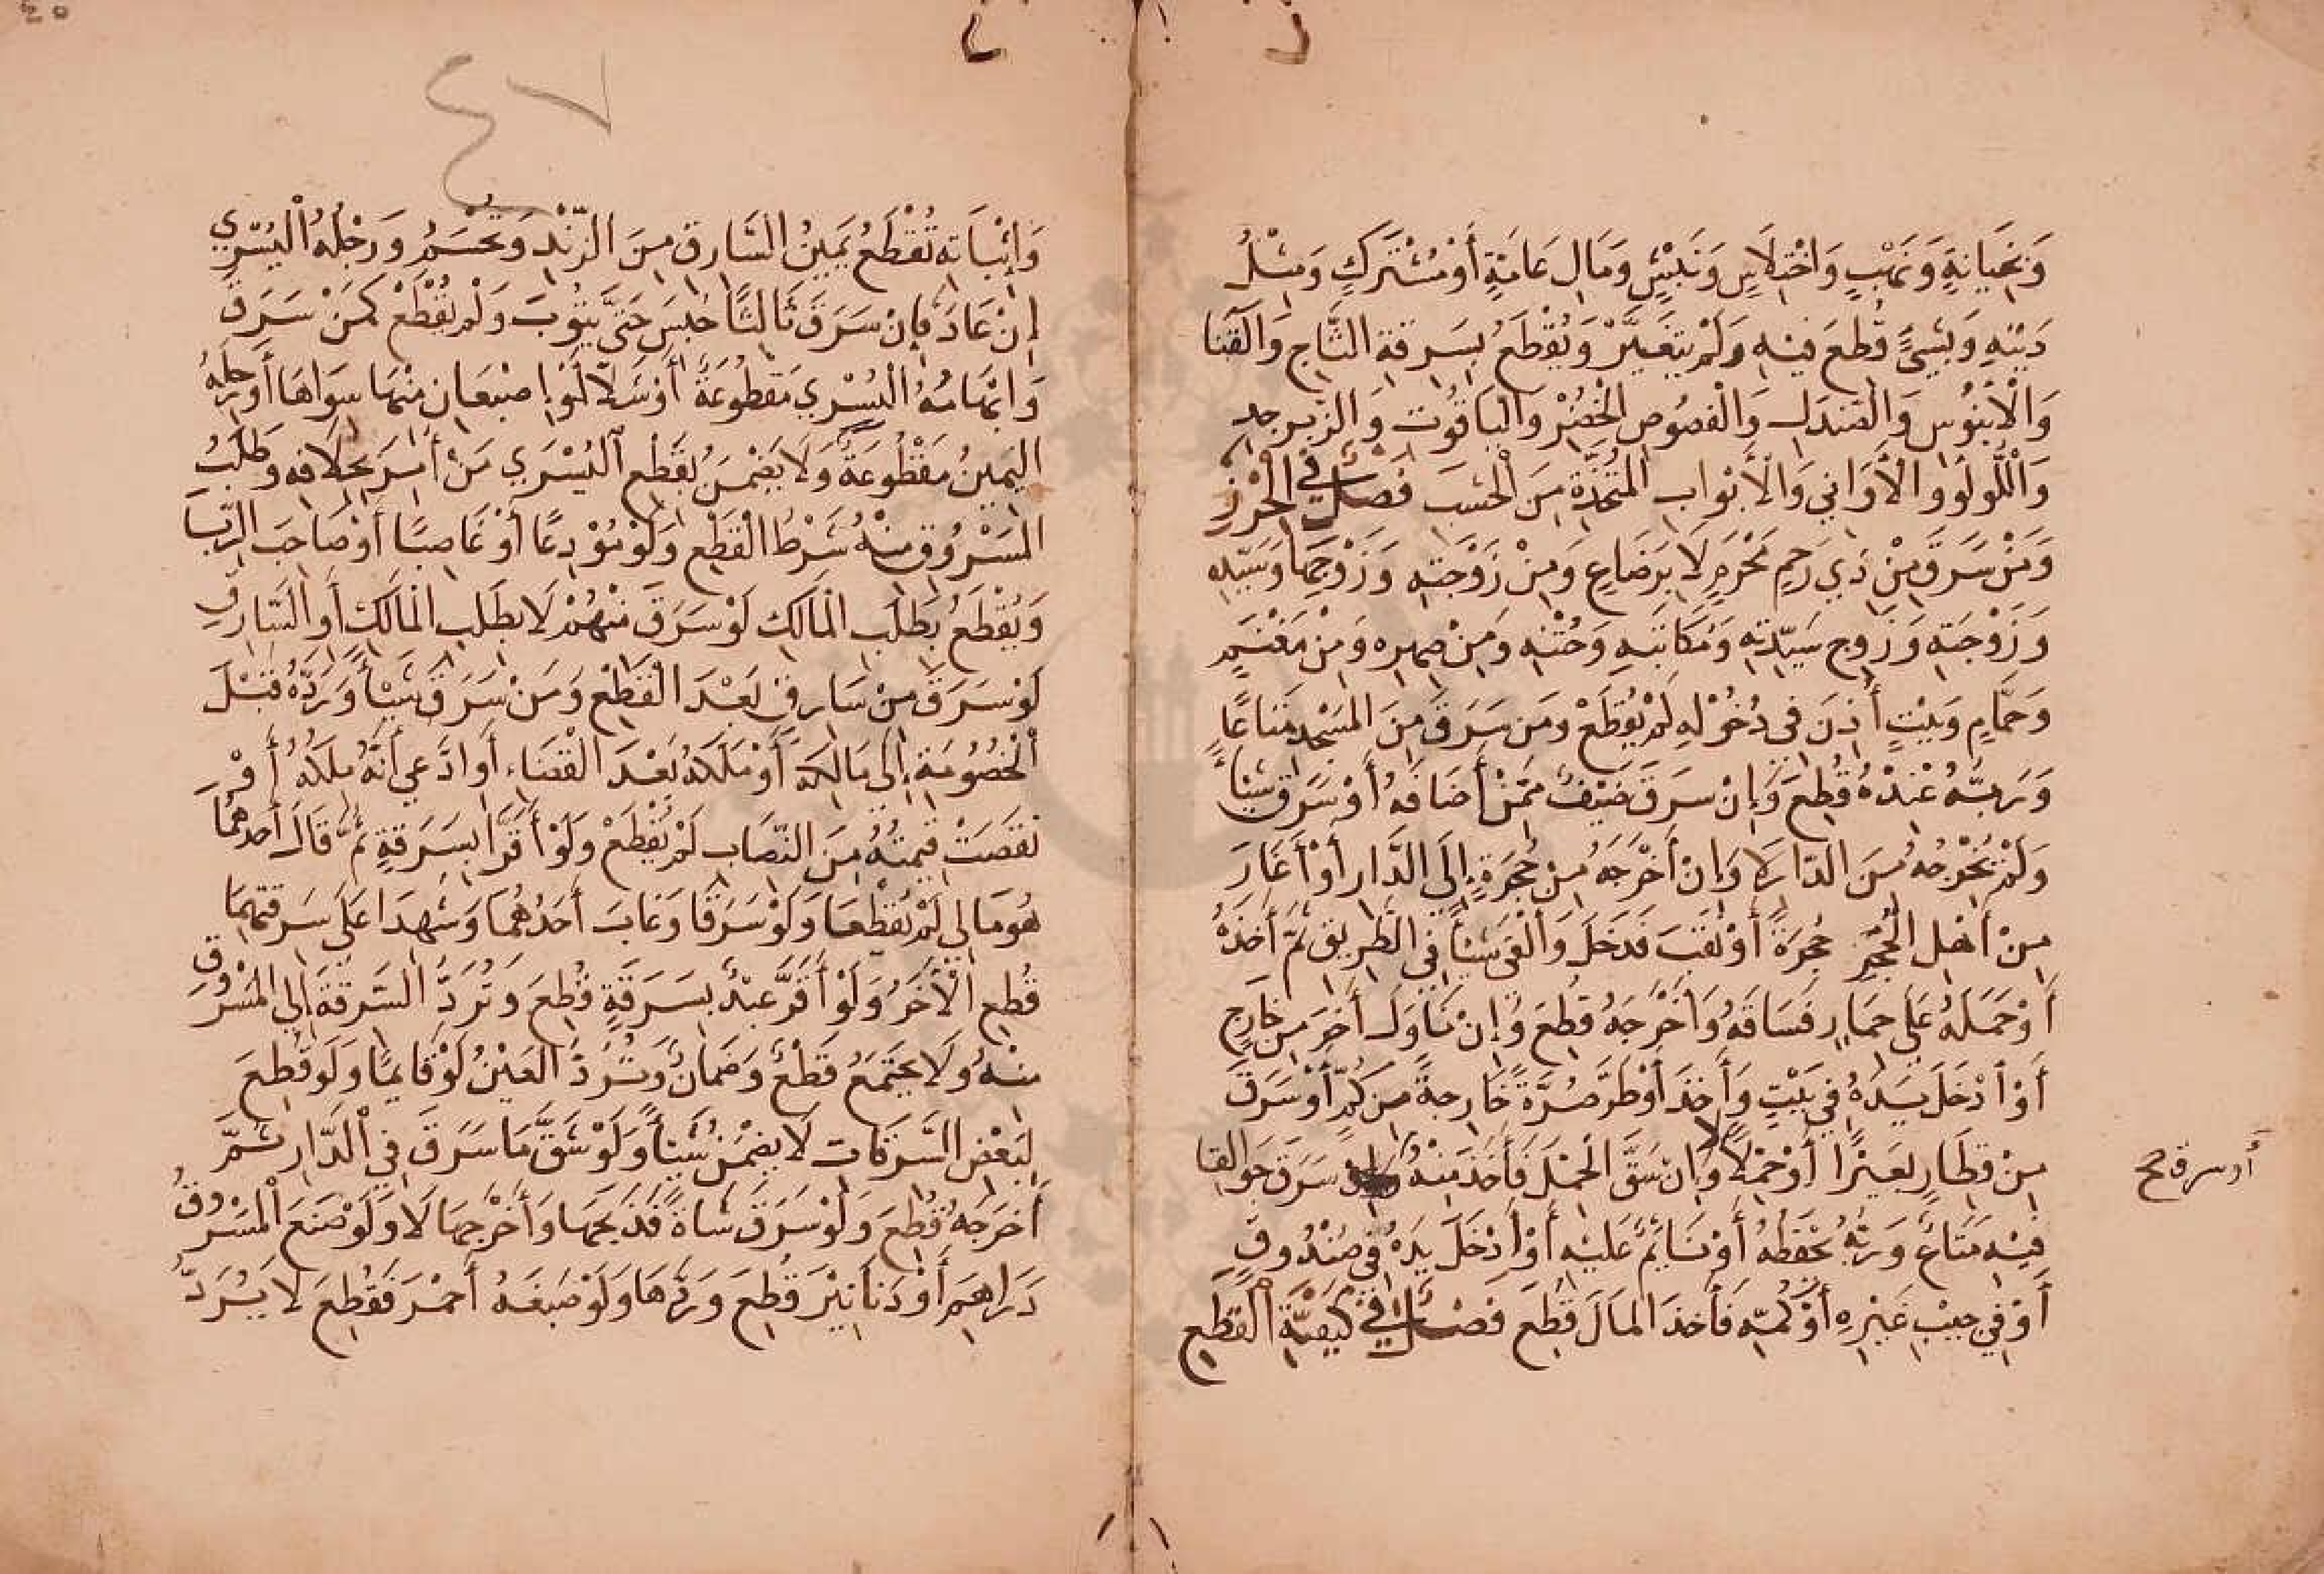 وَبِخِيَانَةٍ وَنَهْبٍ وَاخْتِلَاسٍ وَنَبْشٍ وَمَالِ عَامَّةٍ أَوْ مُشْتَرَكٍ وَمِثْلُ
دَيْنِهِ وَبِشَيْءٍ قُطِعَ فِيْهِ وَلَمْ يَتَغَيَّرْ وَيُقْطَعُ بِسَرِقَةِ السَّاجِ وَالْقَنَا
وَالْأَبَنُوسِ وَالصَّنْدَلِ وَالْفُصُوصِ الْخُضْرِ وَالْيَاقُوتِ وَالزَّبَرْجَدِ
وَاللُّؤْلُؤِ وَالْأَوَانِي وَالْأَبْوَابِ الْمُتَّخَذَةِ مِنَ الْخَشَبِ فَصْلٌ فِي الْحِرْزِ
وَمَنْ سَرَقَ مِنْ ذِي رَحِمٍ مَحْرَمٍ لَا بِرَضَاعٍ وَمِنْ زَوْجَتِهِ وَزَوْجِهَا وَسَيِّدِهِ
وَزَوْجَتِهِ وَزَوْجِ سَيِّدَتِهِ وَمُكَاتَبِهِ وَخَتْنِهِ وَمِنْ صِهْرِهِ وَمِنْ مَغْنَمٍ
وَحَمَّامٍ وَبَيْتٍ أُذِنَ فِي دُخُوْلِهِ لَمْ يُقْطَعْ وَمَنْ سَرَقَ مِنَ الْمَسْجِدِ مَتَاعًا
وَرَبُّهُ عِنْدَهُ قُطِعَ وَإِنْ سَرَقَ ضَيْفٌ مِمَّنْ أَضَافَهُ أَوْ سَرَقَ شَيْئًا
وَلَمْ يُخْرِجْهُ مِنَ الدَّارِ لَا وَإِنْ أَخْرَجَهُ مِنْ حُجْرَةٍ إِلَى الدَّارِ أَوْ أَغَارَ
مِنْ أَهْلِ الْحُجَرِ حُجْرَةً أَوْ نَقَبَ فَدَخَلَ وَأَلْقَى شَيْئًا فِي الطَّرِيقِ ثُمَّ أَخَذَهُ
أَوْ حَمَلَهُ عَلَى حِمَارٍ فَسَاقَهُ وَأَخْرَجَهُ قُطِعَ وَإِنْ نَاوَلَ آخَرَ مِنْ خَارِجٍ
أَوْ أَدْخَلَ يَدَهُ فِي بَيْتٍ وَأَخَذَ أَوْ طَرَّ صُرَّةً خَارِجَةً مِنْ كُمٍّ أَوْ سَرَقَ
مِنْ قِطَارٍ بَعِيْرًا أَوْ حِمْلًا لَا وَإِنْ شَقَّ الْحِمْلَ فَأَخَذَ مِنْهُ سَرَقَ جَوَالِقًا
أو سرق صح
فِيْهِ مَتَاعٌ وَرَبُّهُ يَحْفَظُهُ أَوْ نَائِمٌ عَلَيْهِ أَوْ أَدْخَلَ يَدَهُ فِي صُنْدُوقٍ
أَوْ فِي جَيْبِ غَيْرِهِ أَوْ كُمِّهِ فَأَخَذَ الْمَالَ قُطِعَ فَصْلٌ فِي كَيْفِيَّةِ الْقَطْعِ
٤٧
وَإِثْبَاتِهِ تُقْطَعُ يَمِيْنُ السَّارِقِ مِنَ الزَّنْدِ وَتُحْسَمُ وَرِجْلُهُ الْيُسْرَى
إِنْ عَادَ فَإِنْ سَرَقَ ثَالِثًا حُبِسَ حَتَّى يَتُوْبَ وَلَمْ يُقْطَعْ كَمَنْ سَرَقَ
وَإِبْهَامُهُ الْيُسْرَى مَقْطُوعَةٌ أَوْ شَلَّا أَوْ إِصْبَعَانِ مِنْهَا سِوَاهَا أَوْ رِجْلُهُ
الْيَمِيْنُ مَقْطُوعَةٌ وَلَا يَضْمَنُ بِقَطْعِ الْيُسْرَى مَنْ أُمِرَ بِخِلَافِهِ وَطَلَبُ
الْمَسْرُوْقِ مِنْهُ شَرْطُ الْقَطْعِ وَلَوْ مُوْدِعًا أَوْ غَاصِبًا أَوْ صَاحِبَ الرِّبَا
وَيُقْطَعُ بِطَلَبِ الْمَالِكِ لَوْ سَرَقَ مِنْهُمْ لَا بِطَلَبِ الْمَالِكِ أَوِ السَّارِقِ
لَوْ سَرَقَ مِنْ سَارِقٍ بَعْدَ الْقَطْعِ وَمَنْ سَرَقَ شَيْئًا وَرَدَّهُ قَبْلَ
الْخُصُوْمَةِ إِلَى مَالِكِهِ أَوْ مَلَكَهُ بَعْدَ الْقَضَاءِ أَوِ ادَّعَى أَنَّهُ مِلْكُهُ أَوْ
نَقَصَتْ قِيْمَتُهُ مِنَ النِّصَابِ لَمْ يُقْطَعْ وَلَوْ أَقَرَّا بِسَرَقَةٍ ثُمَّ قَالَ أَحَدُهُمَا
هُوَ مَالِي لَمْ يُقْطَعَا وَلَوْ سَرَقَا وَغَابَ أَحَدُهُمَا وَشَهِدَا عَلَى سَرِقَتِهِمَا
قُطِعَ الْآخَرُ وَلَوْ أَقَرَّ عَبْدٌ بِسَرَقَةٍ قُطِعَ وَتُرَدُّ السَّرِقَةُ إِلَى الْمَسْرُوْقِ
مِنْهُ وَلَا يَجْتَمِعُ قَطْعٌ وَضَمَانٌ وَتُرَدُّ الْعَيْنُ لَوْ قَائِمًا وَلَوْ قُطِعَ
لِبَعْضِ السَّرِقَاتِ لَا يَضْمَنُ شَيْئًا وَلَوْ شَقَّ مَا سَرَقَ فِي الدَّارِ ثُمَّ
أَخْرَجَهُ قُطِعَ وَلَوْ سَرَقَ شَاةً فَذَبَحَهَا وَأَخْرَجَهَا لَا وَلَوْ صَنَعَ الْمَسْرُوْقُ
دَرَاهِمَ أَوْ دَنَانِيْرَ قُطِعَ وَرَدَّهَا وَلَوْ صَبَغَهُ أَحْمَرَ فَقُطِعَ لَا يُرَدُّ